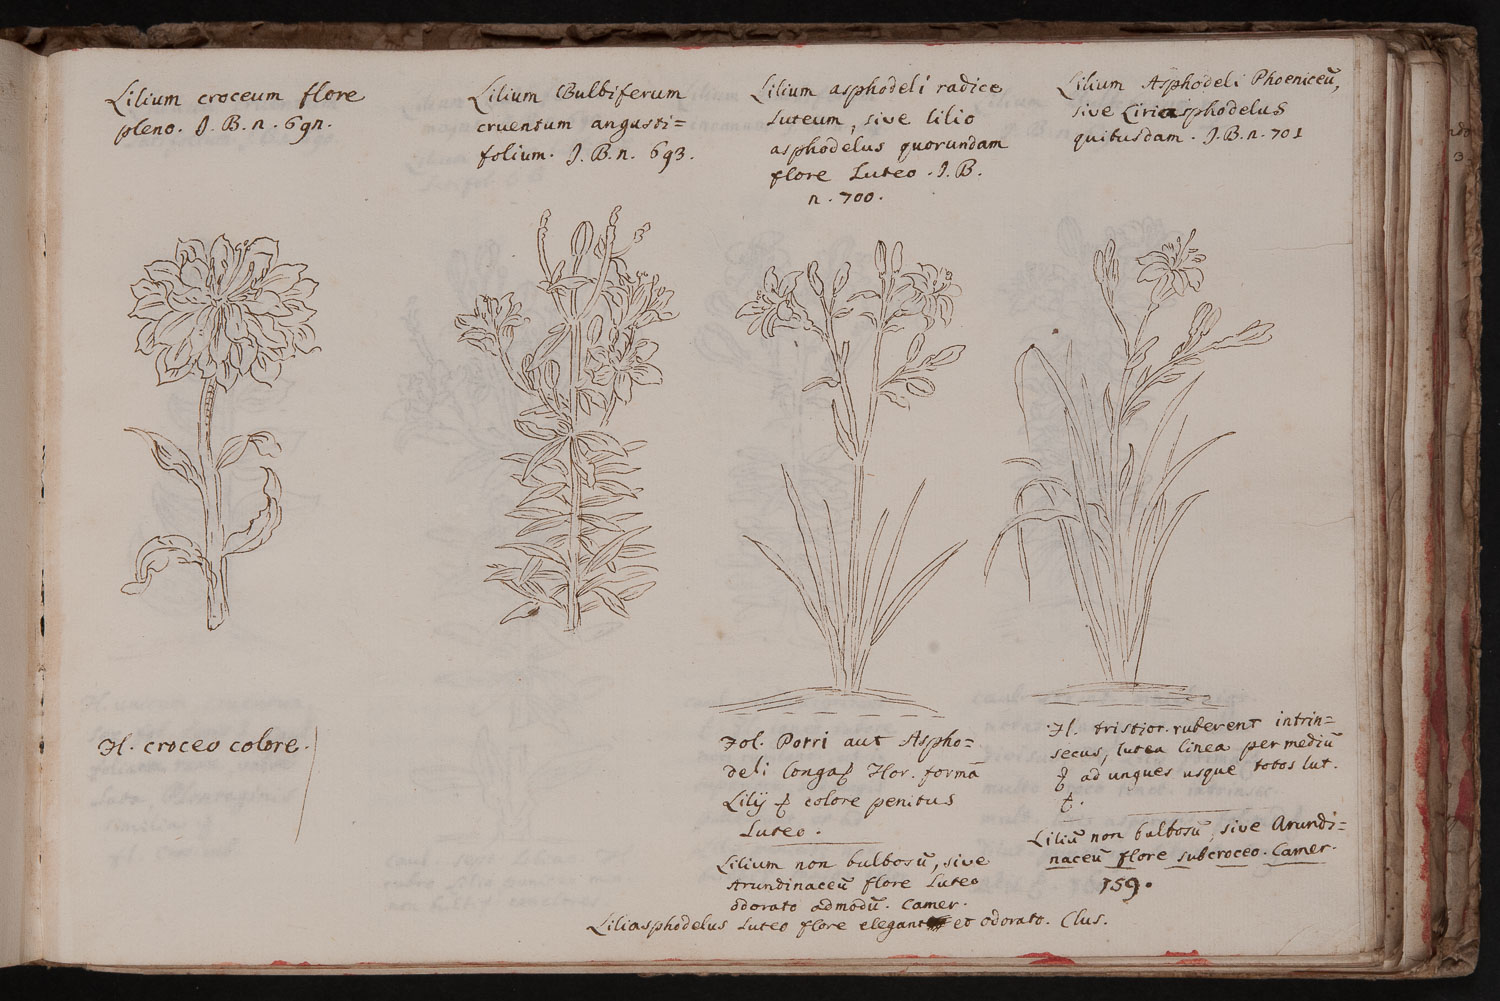 Lilium croceum flore
pleno. J. B. n. 69n.
Lilium Bulbiferum
cruentum angusti=
folium. J. B. n. 693.
Lilium asphodeli radice
Luteum, sive lilio
asphodelus quorundam
flore Luteo. J. B.
n. 700.
Lilium Asphodeli Phoeniceũ,
sive Liriasphodelus
quibusdam. J. B. n. 701
Fl. croceo colore.
Fol. Porri aut Aspho=
deli longa flor. formâ
Lilij colore penitus
Luteo.
Lilium non bulbosũ, sive
Arundinaceũ flore Luteo
odorato admodũ. Camer.
Liliasphodelus Luteo flore elegant et odorato. Clus.
Fl. tristior. ruberent intrin=
secus, lutea linea per mediũ
ad unques usque totos lut.
Liliũ non bulbosũ, sive Arundi=
naceũ flore subcroceo. Camer.
159.